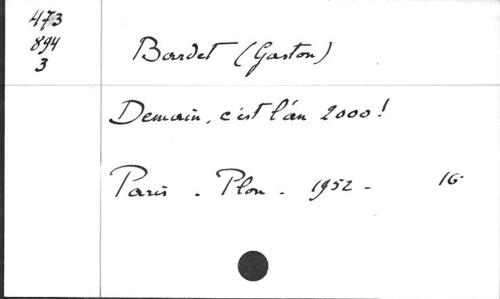 473
894
3
Bardet (Gaston)
Demain, c'est l'an 2000!
Paris - Plon - 1952 - 16